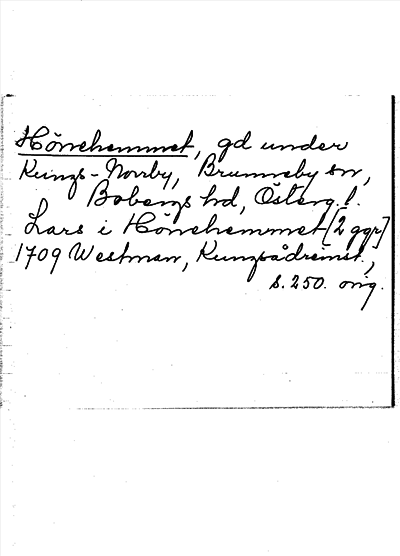 Hörnehemmet, gd under
Kungs-Norrby, Brunneby sn,
Bobergs hd, Österg. l.
Lars i Hörnehemmet [2 ggr]
1709 Westman, Kungsådreinst.,
s. 250. orig.